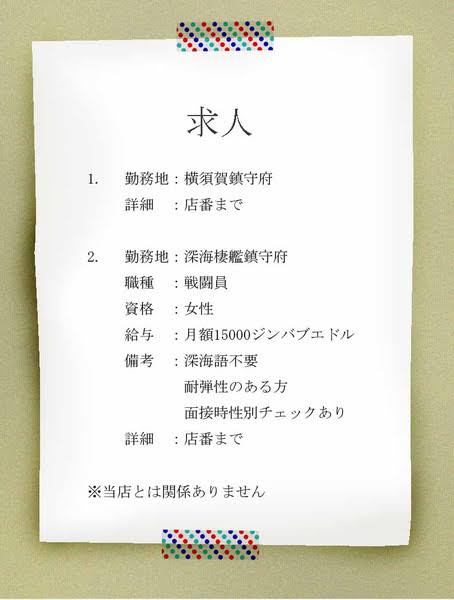 求人
1. 勤務地：横須賀鎮守府
詳細：店番まで
2. 勤務地：深海棲艦鎮守府
職種：戦闘員
資格：女性
給与：月額15000ジンバブエドル
備考：深海語不要
耐弾性のある方
面接時性別チェックあり
詳細：店番まで
※当店とは関係ありません